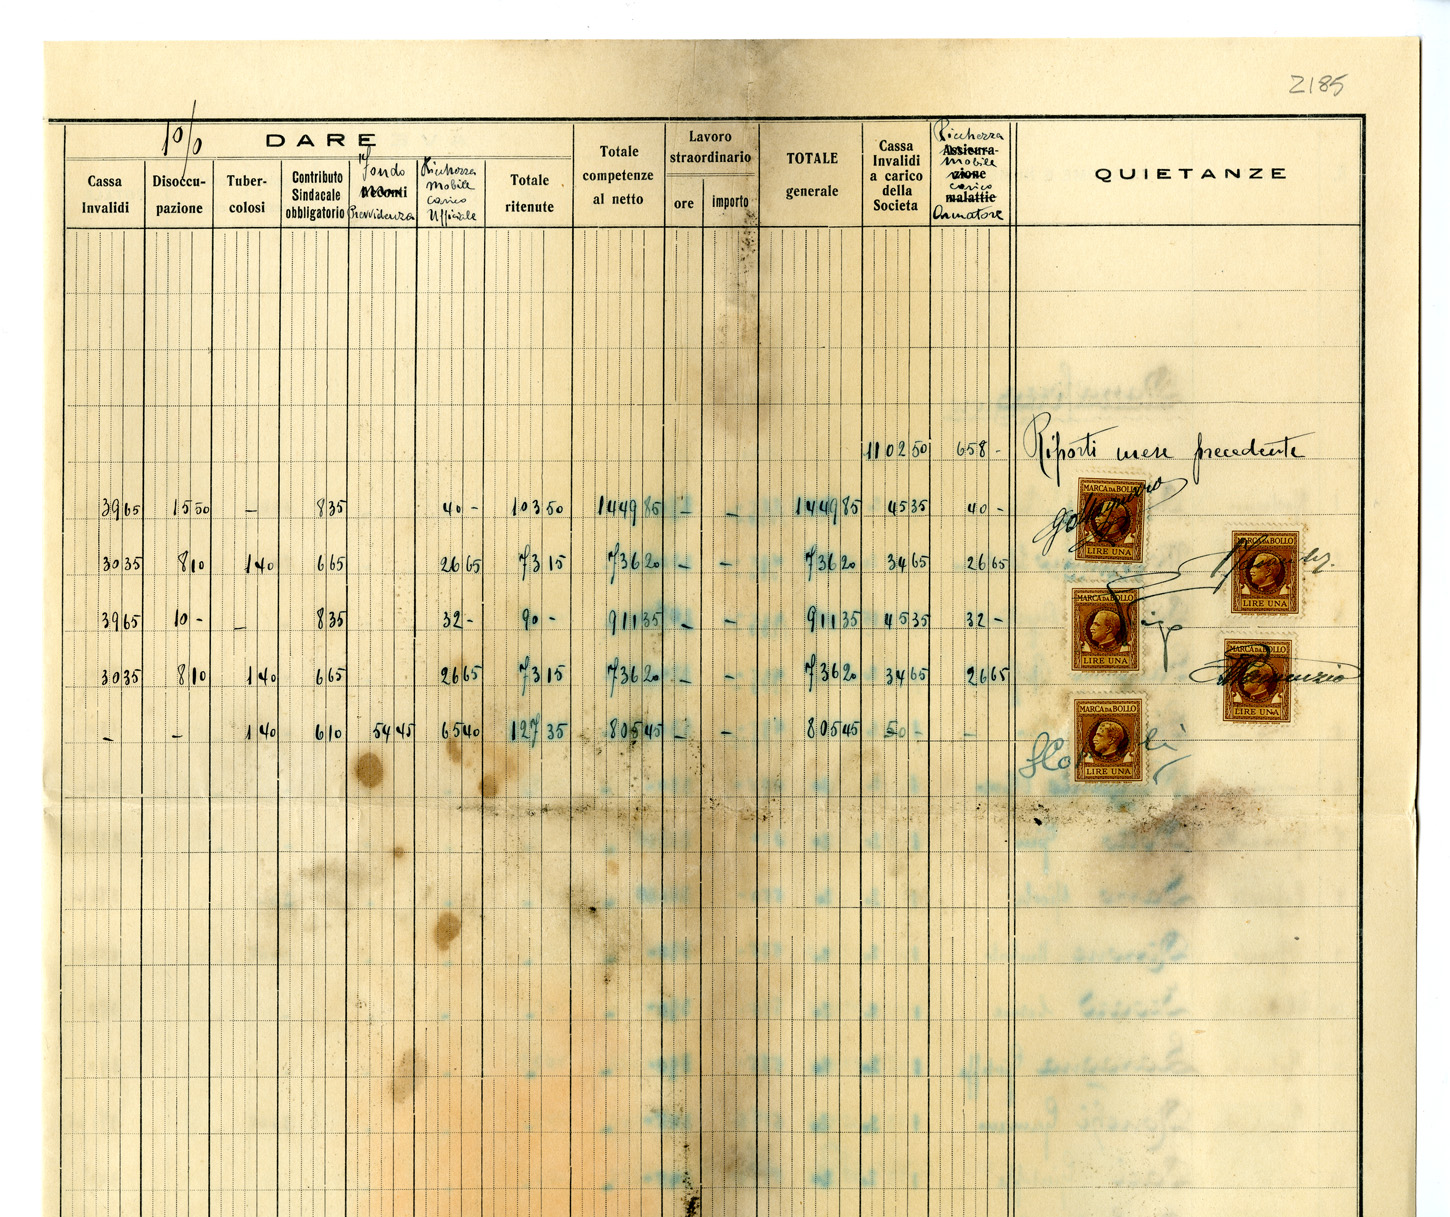 2185
1%
DARE
Cassa Invalidi
Disoccu-pazione
Tuber-colosi
Contributo Sindacale obbligatorio
Fondo Acconti Previdenza
Ricchezza mobile carico Ufficiale
Totale ritenute
Totale competenze al netto
Lavoro straordinario
ore
importo
TOTALE generale
Cassa Invalidi a carico della Societa
Assicura-zione malattie
Ricchezza mobile carico Armatore
QUIETANZE
1102 50 658 - Riporti mese precedente
39 65 15 50 - 8 35 40 - 103 50 1449 85 - - 1449 85 45 35 40 -
30 35 8 10 1 40 6 65 26 65 73 15 736 20 - - 736 20 34 65 26 65
39 65 10 - - 8 35 32 - 90 - 911 35 - - 911 35 45 35 32 -
30 35 8 10 1 40 6 65 26 65 73 15 736 20 - - 736 20 34 65 26 65
- - 1 40 6 10 54 45 65 40 127 35 805 45 - - 805 45 50 - -
MARCA DA BOLLO
LIRE UNA
MARCA DA BOLLO
LIRE UNA
MARCA DA BOLLO
LIRE UNA
MARCA DA BOLLO
LIRE UNA
MARCA DA BOLLO
LIRE UNA